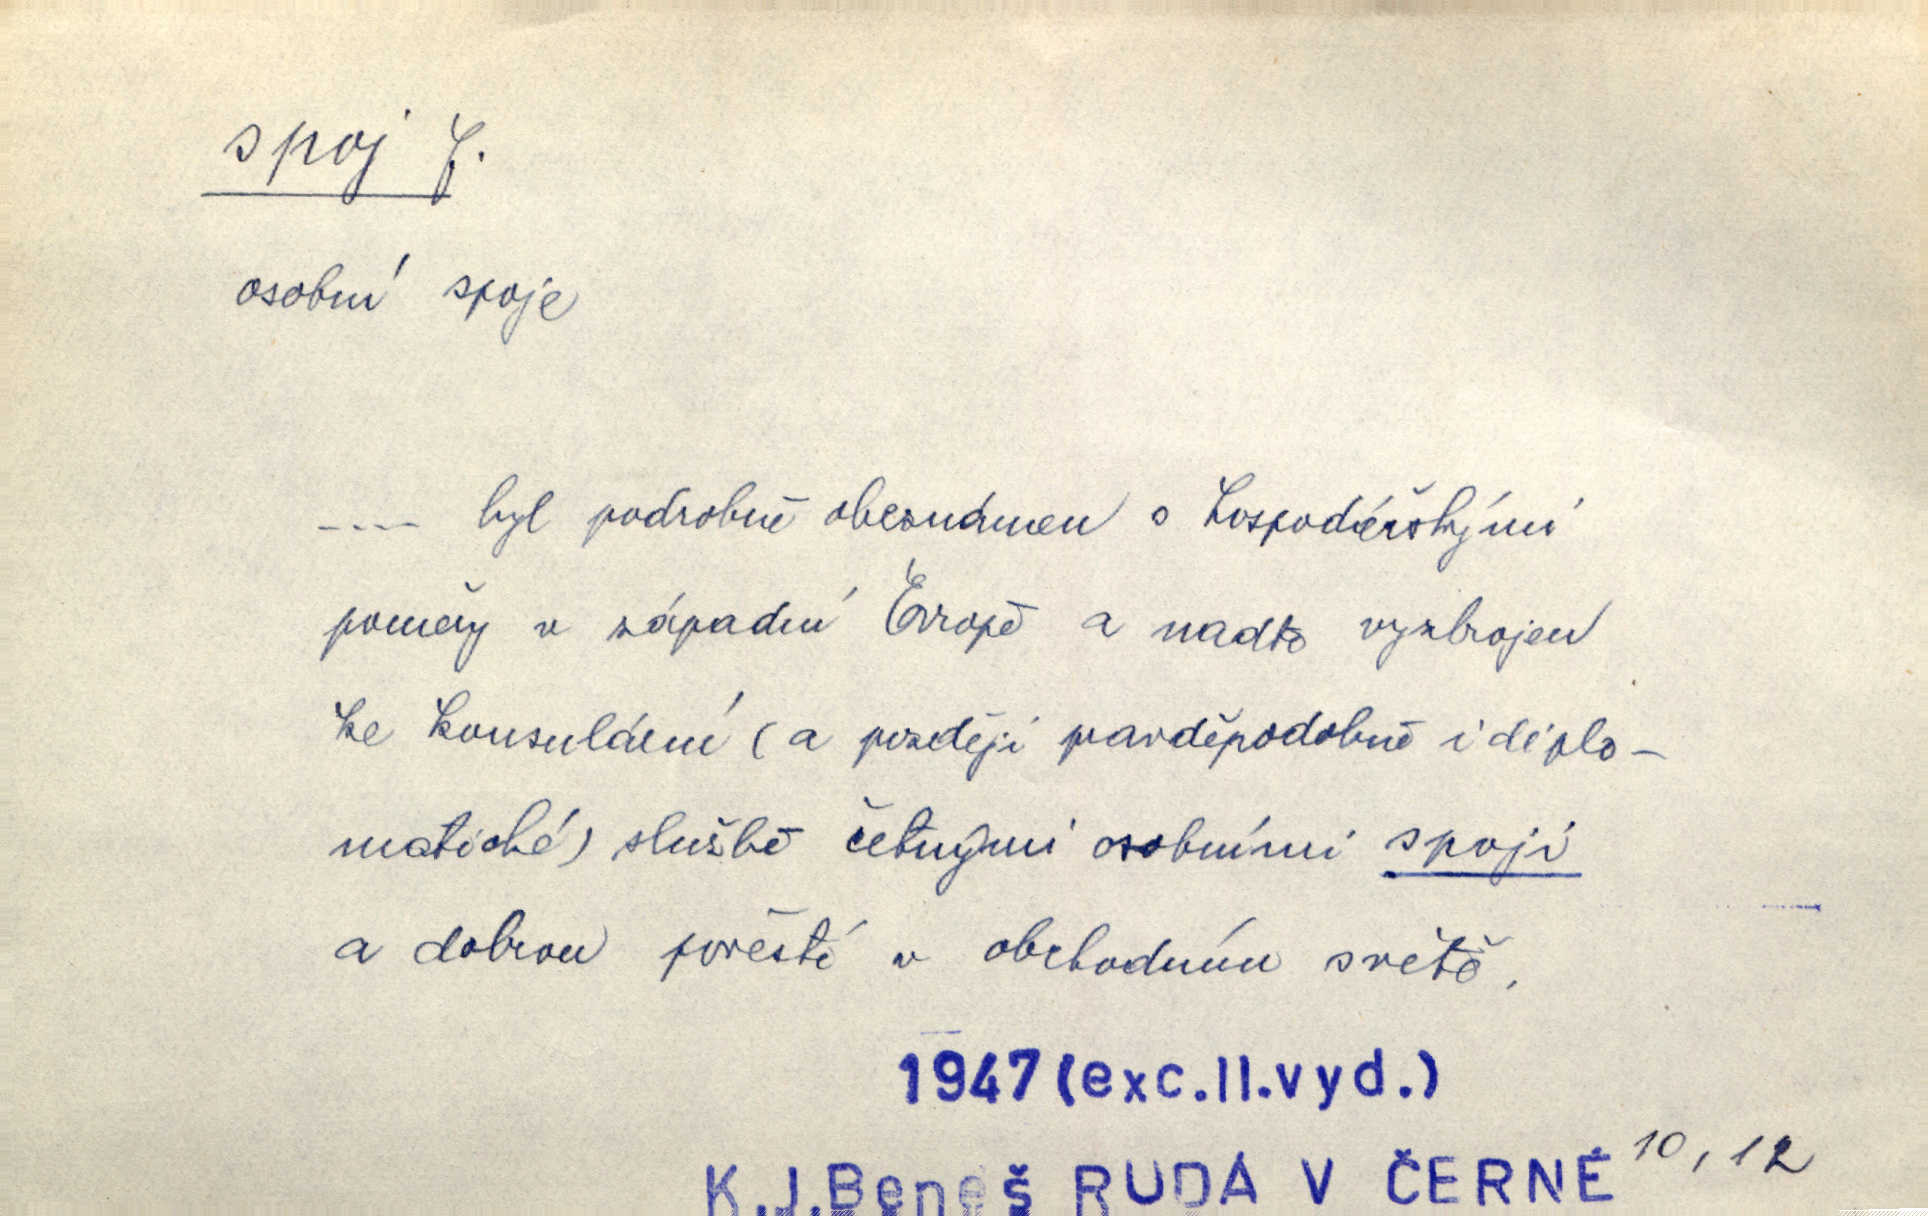 spoj f.
osobní spoje
---- byl podrobně obeznámen o hospodářskými
poměry v západní Evropě a nadto vyzbrojen
ke konsulární (a později pravděpodobně i diplo-
matické) službě četnými osobními spoji
a dobrou pověstí v obchodním světě.
1947 (exc.II.vyd.)
K.J.Beneš RUDÁ V ČERNÉ 10,12